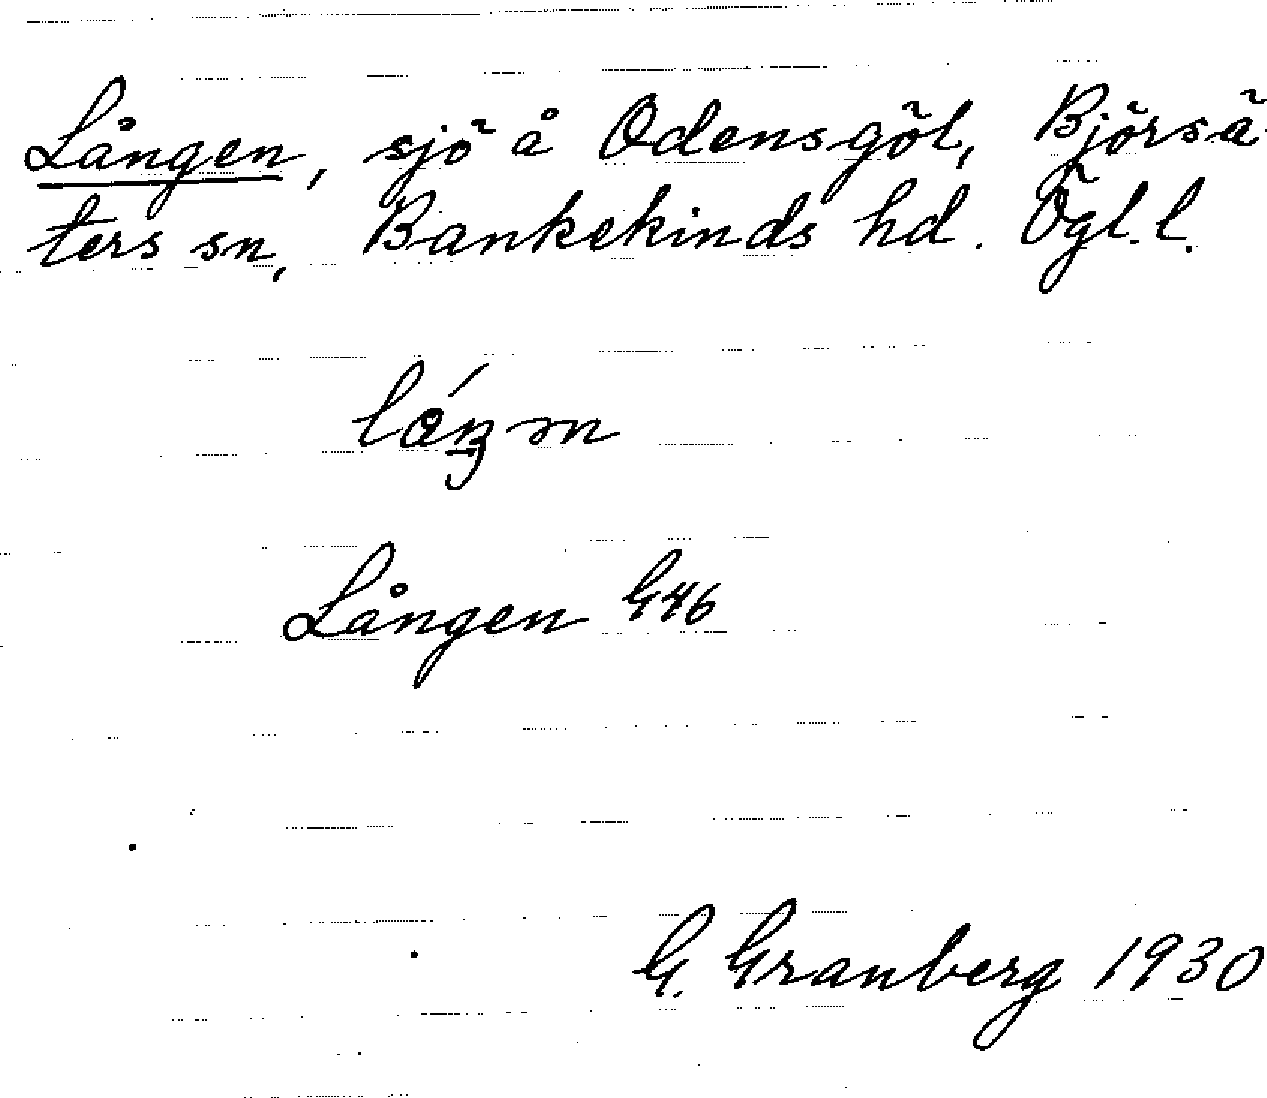 Lången, sjö å Odensgöl, Björsä-
ters sn, Bankekinds hd. Ögl. l.
Lången G46
G. Granberg 1930